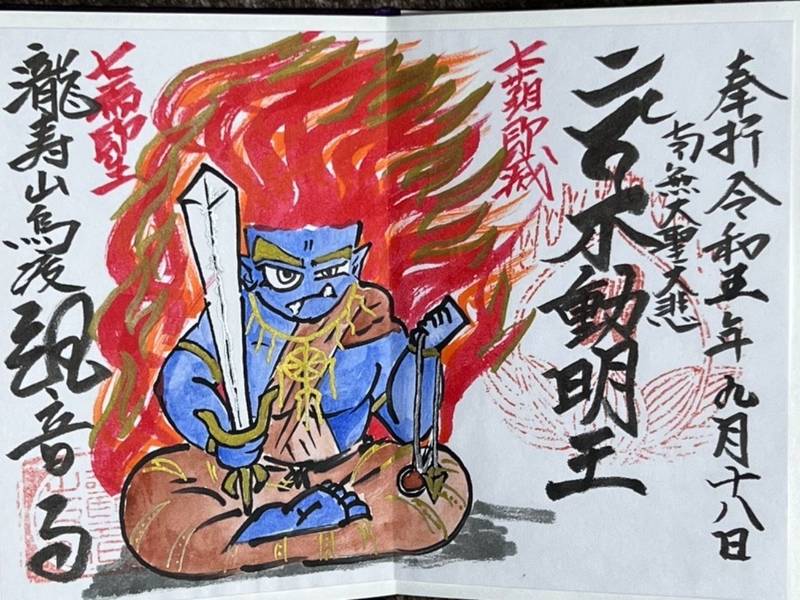 奉拝令和五年九月十八日
南無大聖大悲
不動明王
七難即滅
七福即生
瀧寿山鳥渡観音寺